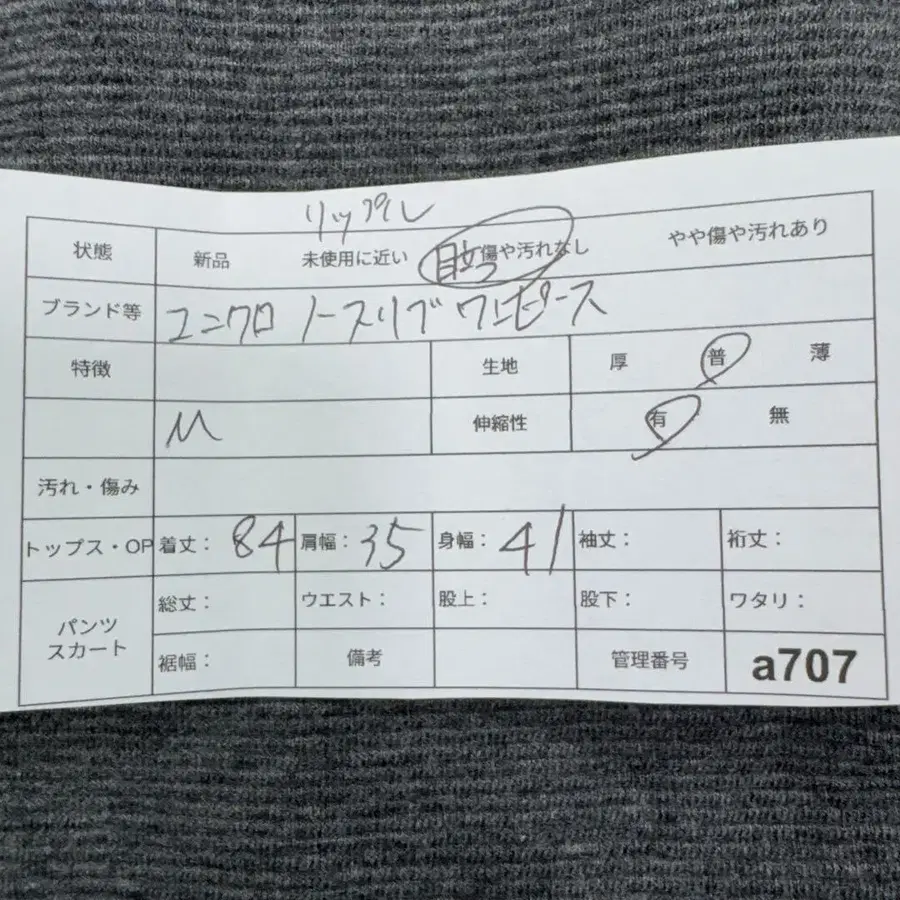 リップル
状態 新品 未使用に近い 目立つ傷や汚れなし やや傷や汚れあり
ブランド等 ユニクロ ノースリブワンピース
特徴 生地 厚 普 薄
M 伸縮性 有 無
汚れ・傷み
トップス・OP 着丈: 84 肩幅: 35 身幅: 41 袖丈: 裄丈:
パンツ スカート 総丈: ウエスト: 股上: 股下: ワタリ:
裾幅: 備考 管理番号 a707